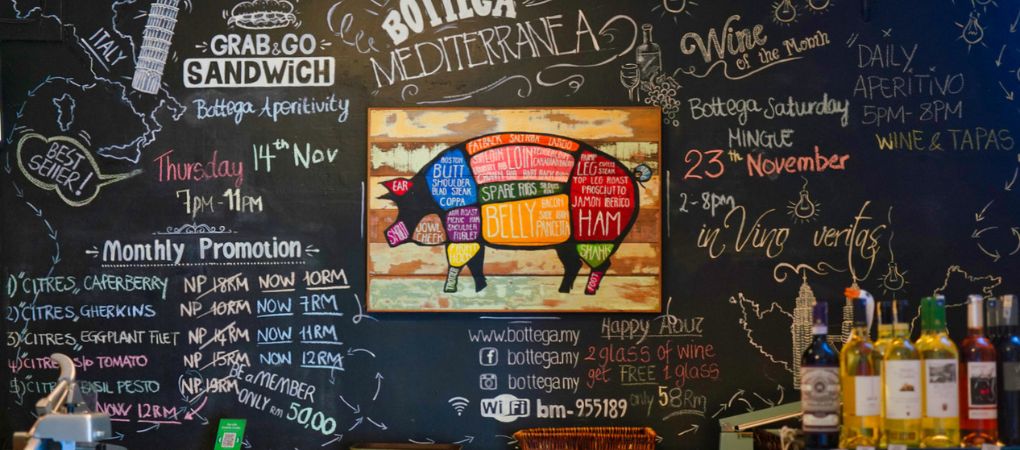 ITALY
GRAB&GO
SANDWICH
Bottega Aperitivity
Thursday 14th Nov
7PM-11PM
BEST
SELLER!
BOTTEGA
MEDITERRANEA
Wine
of the Month
DAILY
APERITIVO
5PM-8PM
WINE & TAPAS
Bottega Saturday
MINGLE
23th November
2-8pm
in Vino veritas
FATBACK SALT PORK LARDO
LOIN
BOSTON
BUTT
SHOULDER
BLAD STEAK
COPPA
EAR
SNOUT
JOWL
CHEEK
ARM ROAST
PICNIC HAM
SHOULDER
SPARE RIBS
BELLY
BACON
SIDE
PANCETTA
RUMP
LEG
TOP LEG ROAST
PROSCIUTTO
JAMON IBERICO
HAM
SHANK
FOOT
Monthly Promotion
1) CITRES, CAPERBERRY NP 18RM NOW 10RM
2) CITRES, GHERKINS NP 9RM NOW 7RM
3) CITRES, EGGPLANT FILET NP 14RM NOW 11RM
4) CITRES, s/o TOMATO NP 15RM NOW 12RM
5) CITRES, BASIL PESTO NP 19RM
NOW 12RM
BE A MEMBER
ONLY RM 50,00
www.bottega.my
bottegamy
bottegamy
WiFi bm-955189
Happy Hour
2 glass of wine
get FREE 1 glass
only 58RM